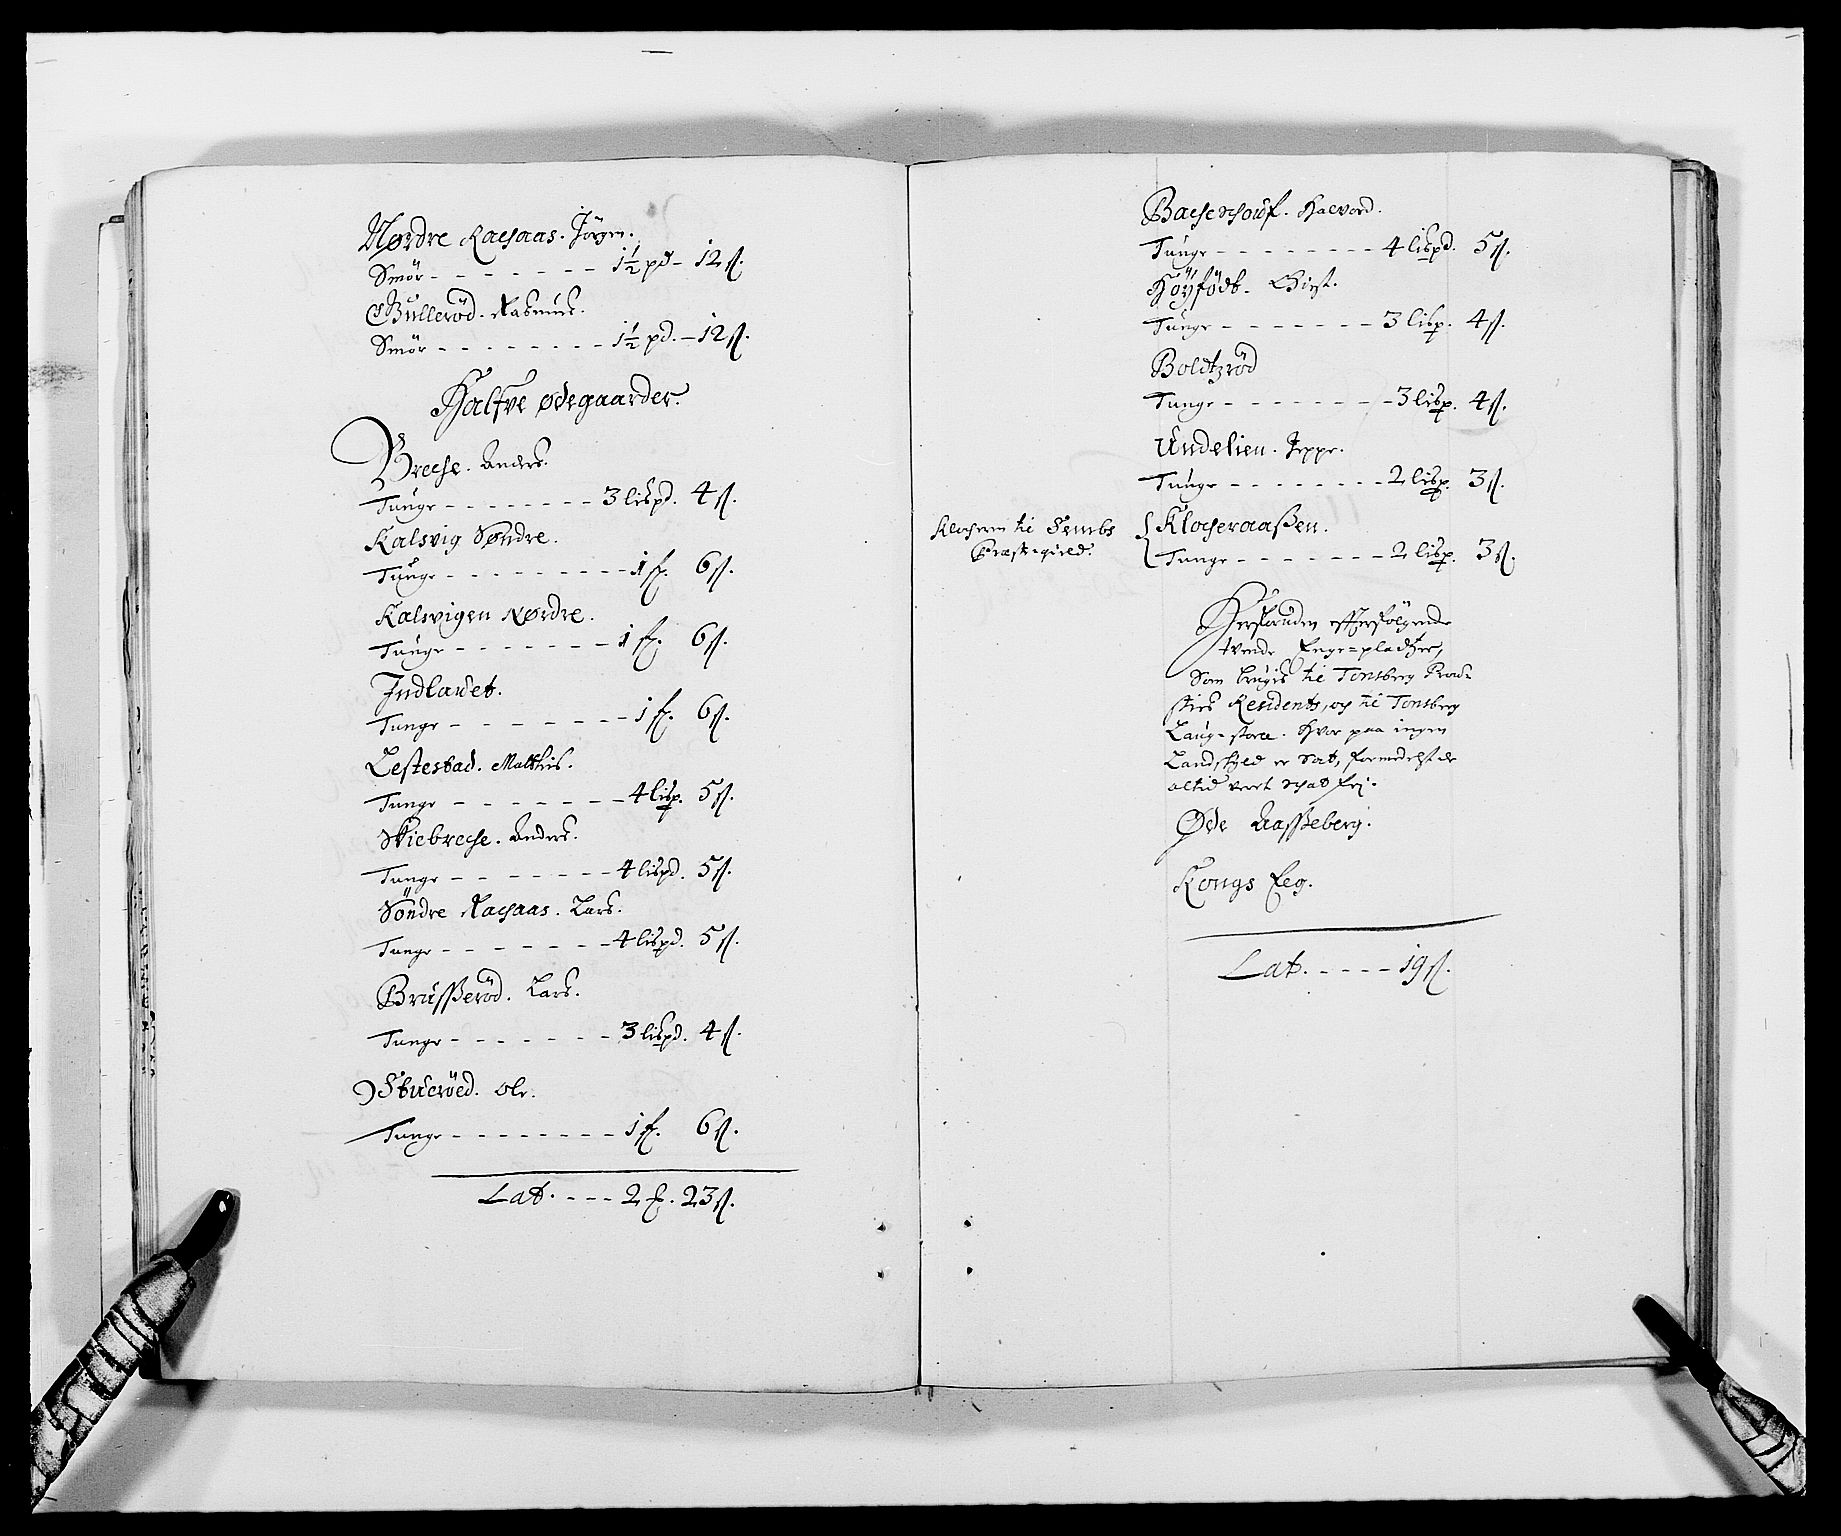 Nørdre Rachaas. Jörgen.
Smör - - - - - - - 1½ pd - 12 ß.
Bulleröd. Rasmus.
Smör - - - - - - - - 1½ pd. - 12 ß.
Halfve Ødegaarder.
Breche. Anders.
Tunge - - - - - - - - 3 lispd. 4 ß.
Kalsvig Søndre.
Tunge - - - - - - - - - 1 f. 6 ß.
Kalsvigen Nørdre.
Tunge - - - - - - - - 1 f. 6 ß.
Indlauet.
Tunge - - - - - - - - 1 f. 6 ß.
Lestestad. Matthis.
Tunge - - - - - - - 4 lisp. 5 ß.
Skiebreche. Anders.
Tunge - - - - - - - 4 lispd. 5 ß.
Söndre Rachaas. Lars.
Tunge - - - - - - - 4 lispd. 5 ß.
Brusserød. Lars.
Tunge - - - - - - - 3 lispd. 4 ß.
Stueröed. Ole.
Tunge - - - - - - - - 1 f. 6 ß.
Lat. - - - 2 f. 23 ß.
Bacheschouf. Halvord.
Tunge - - - - - - - - 4 lispd. 5 ß.
Höyfödt.
Tunge - - - - - - - 3 lisp. 4 ß.
Boldtzröd
Tunge - - - - - - - - 3 lisp. 4 ß.
Undelien. Jeppe.
Tunge - - - - - - - - 2 lisp. 3 ß.
Klocheren til Sembs
Præste-gield.
Klocheraaßen.
Tunge - - - - - - - 2 lisp. 3 ß.
Herforuden efterfölgende
tvende Enge-pladtzer,
Som brugis til Tonsberg Prov-
sties Residents, och til Tonsberg
Laug-stoel. Hvor paa ingen
Landskyld er Sat, formedelst de
altid veret schat frj.
Øde Aasseberg.
Kongs Eeg.
Lat. - - - - - 19 ß.